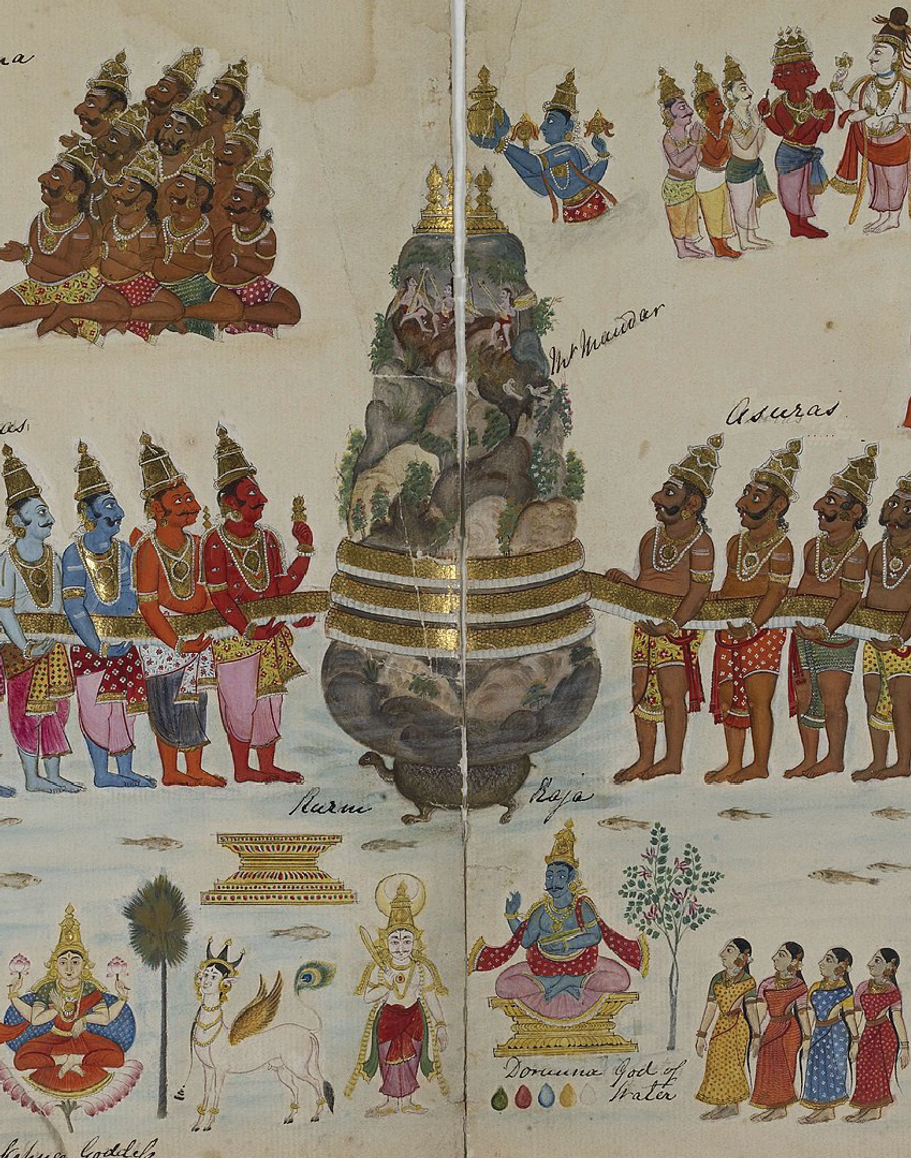 na
Mt Mandar
as
Asuras
Kurm Raja
Dorunna God of
Water
Goddess